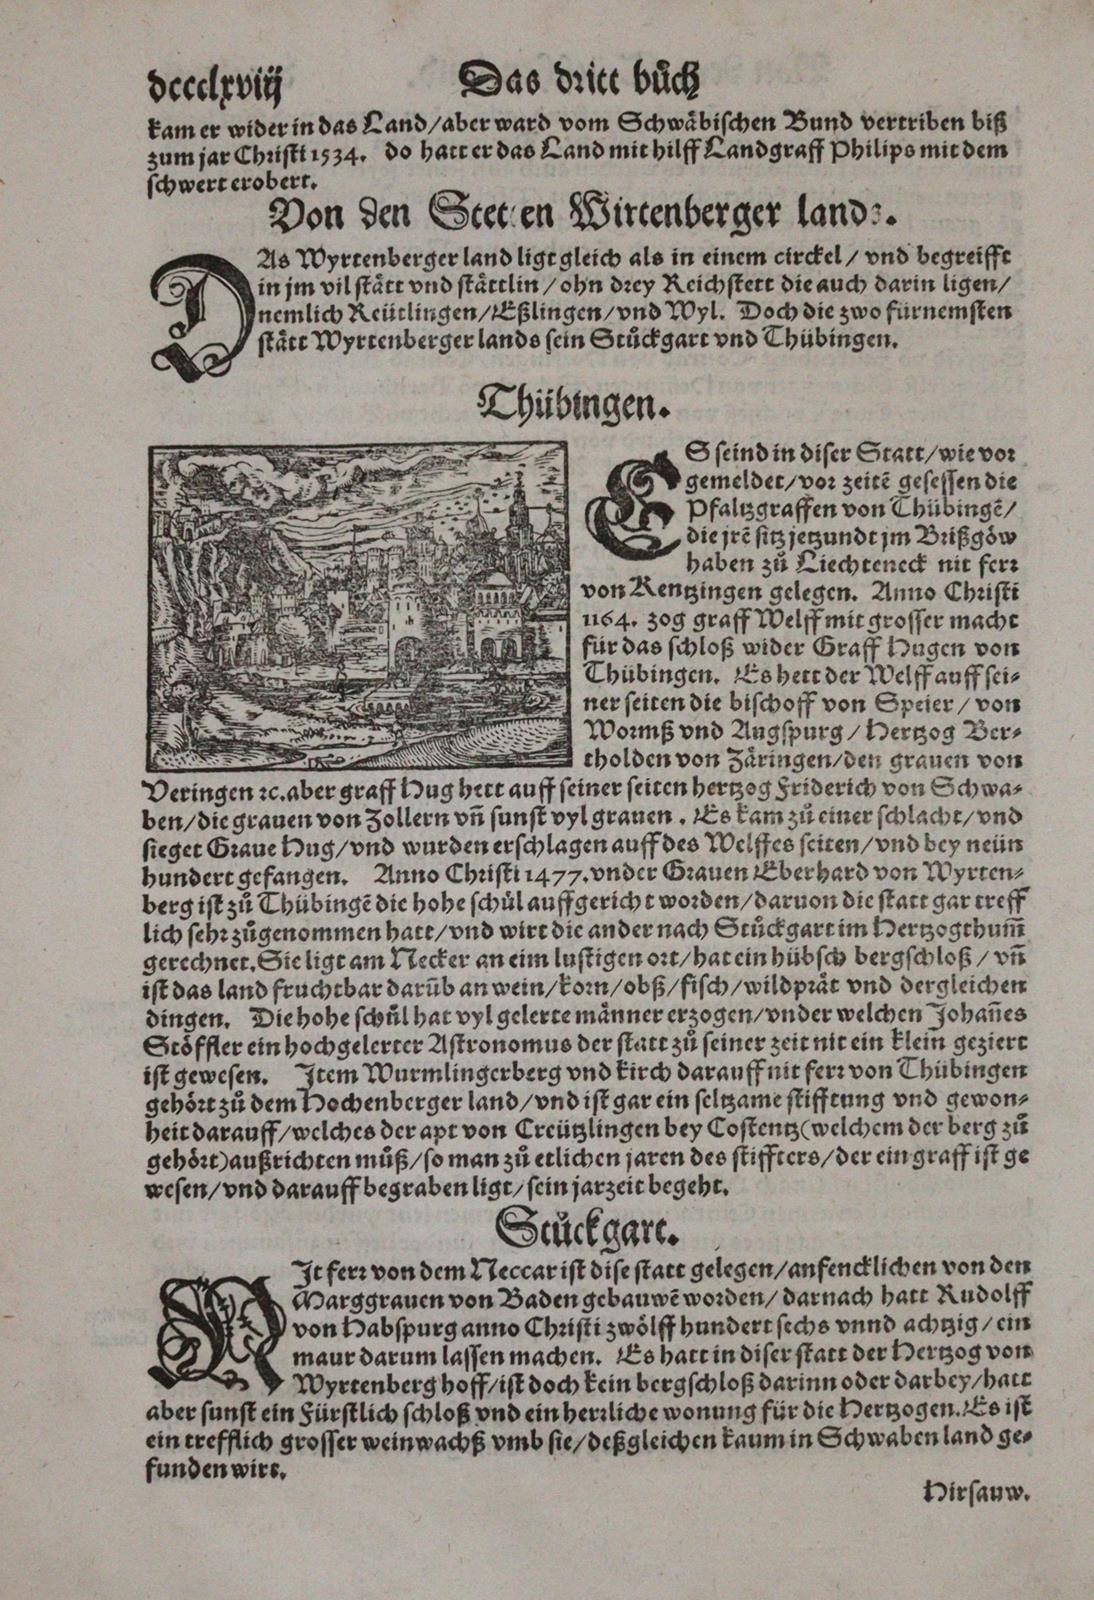 dcccclxviij
Das dritt bůch
kam er wider in das Land/aber ward vom Schwäbischen Bund vertriben biß
zum jar Christi 1534. do hatt er das Land mit hilff Landgraff Philips mit dem
schwert erobert.
Von den Stetten Wirtenberger lands.
DAs Wyrtenberger land ligt gleich als in einem circkel/ vnd begreifft
in jm vil stätt vnd stättlin/ ohn drey Reichstett die auch darin ligen/
nemlich Reütlingen/Eßlingen/vnd Wyl. Doch die zwo fürnemsten
stätt Wyrtenberger lands sein Stůckgart vnd Thübingen.
Thübingen.
ES seind in diser Statt/wie vor
gemeldet/vor zeitẽ gesessen die
Pfaltzgraffen von Thübingẽ/
die jrẽ sitz jetzundt jm Brißgöw
haben zů Liechteneck nit ferr
von Kentzingen gelegen. Anno Christi
1164. zog graff Welff mit grosser macht
für das schloß wider Graff Hugen von
Thübingen. Es hett der Welff auff sei-
ner seiten die bischoff von Speier/ von
Wormß vnd Augspurg/Hertzog Ber-
tholden von Zäringen/den grauen von
Veringen ꝛc. aber graff Hug hett auff seiner seiten hertzog Friderich von Schwa-
ben/die grauen von Zollern vñ sunst vyl grauen. Es kam zů einer schlacht/vnd
sieget Graue Hug/vnd wurden erschlagen auff des Welffes seiten/vnd bey neün
hundert gefangen. Anno Christi 1477. vnder Grauen Eberhard von Wyrten-
berg ist zů Thübingẽ die hohe schůl auffgericht worden/daruon die statt gar treff
lich sehr zůgenommen hatt/vnd wirt die ander nach Stůckgart im Hertzogthum̃
gerechnet. Sie ligt am Necker an eim lustigen ort/hat ein hübsch bergschloß/ vñ
ist das land fruchtbar darũb an wein/korn/obß/fisch/wildprät vnd dergleichen
dingen. Die hohe schůl hat vyl gelerte männer erzogen/vnder welchen Johañes
Stöffler ein hochgelerter Astronomus der statt zů seiner zeit nit ein klein geziert
ist gewesen. Item Wurmlingerberg vnd kirch darauff nit ferr von Thübingen
gehört zů dem Hochenberger land/vnd ist gar ein seltzame stifftung vnd gewon-
heit darauff/welches der apt von Creützlingen bey Costentz(welchem der berg zů
gehört)außrichten můß/so man zů etlichen jaren des stiffters/der ein graff ist ge
wesen/vnd darauff begraben ligt/sein jarzeit begeht.
Stůckgart.
NIt ferr von dem Neccar ist dise statt gelegen/anfencklichen von den
Marggrauen von Baden gebauwẽ worden/ darnach hatt Rudolff
von Habspurg anno Christi zwölff hundert sechs vnnd achtzig/ein
maur darum lassen machen. Es hatt in diser statt der Hertzog von
Wyrtenberg hoff/ist doch kein bergschloß darinn oder darbey/hatt
aber sunst ein Fürstlich schloß vnd ein herrliche wonung für die Hertzogen. Es ist
ein trefflich grosser weinwachß vmb sie/deßgleichen kaum in Schwaben land ge-
funden wirt.
Hirsauw.